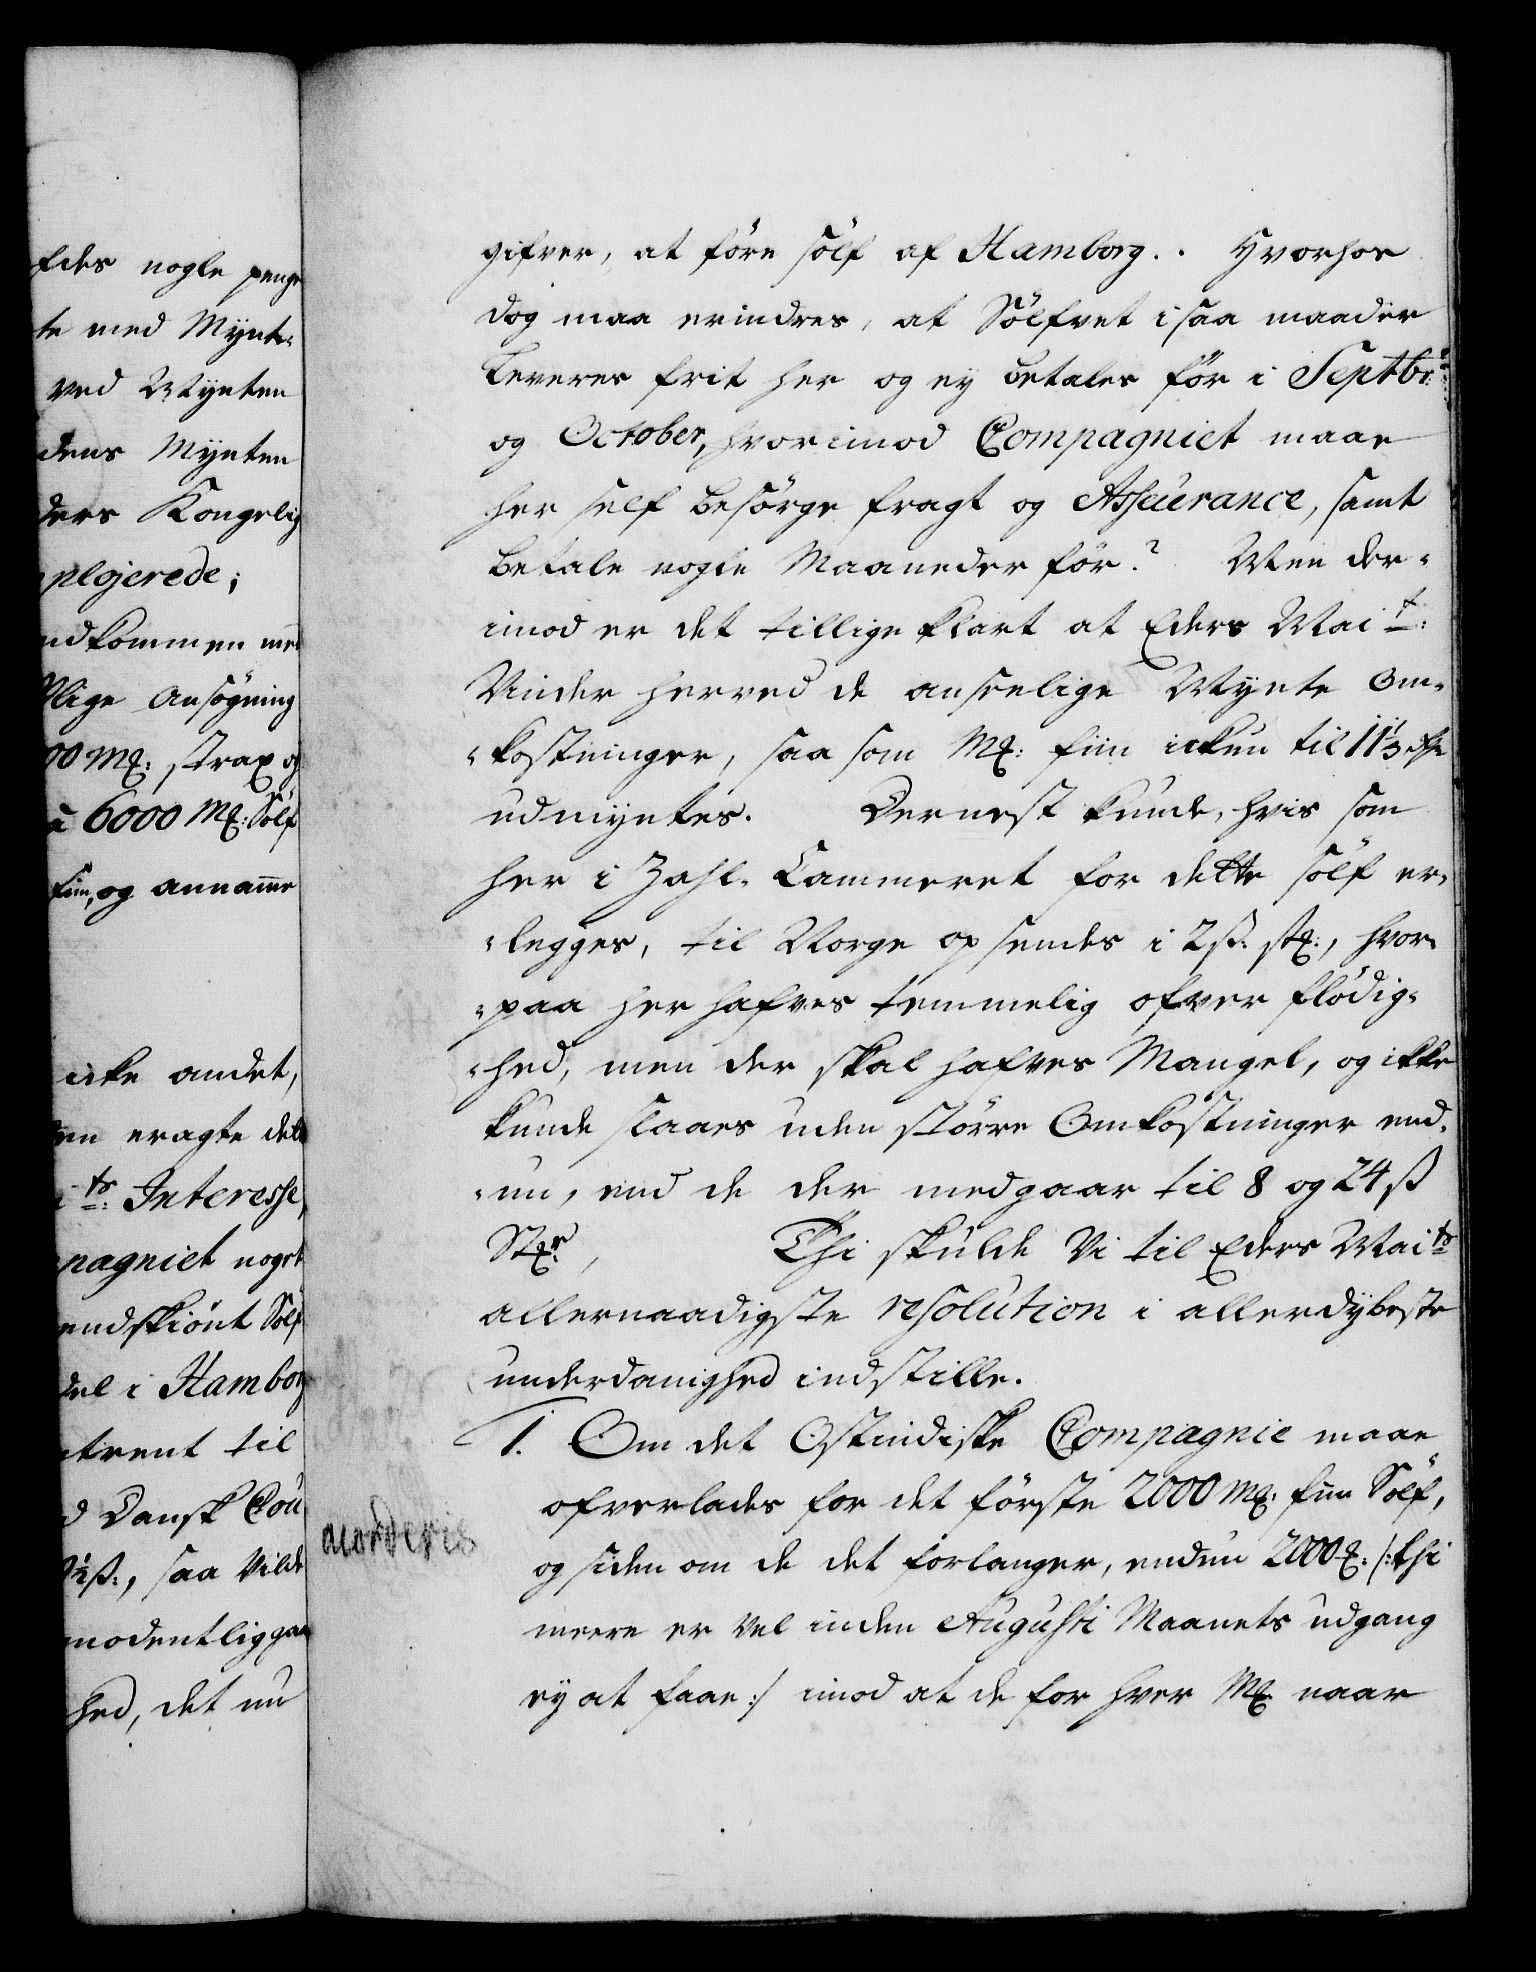 fdes nogle penge
te med Mynt-
ved Mynten
dens Mynten
ders Kongelig
plojerede;
ndkommen med
llige Ansøgning
00 M&: strax og
a 6000 M&: Sölf
fiin, og annamme
icke andet,
en eragte dett
its: Interesse,
pagniet noget
endskiönt Sölf
del i Hamborg
trent til
d Dansk Cou
½ ß:, saa Vilde
modentlig gaa
hed, det nu
gifver, at före sölf af Hamborg.. Hvorhos
dog maa erindres, at Sölfvet i saa maader
leveres frit her og ey betales för i Septbr:
og October, hvorimod Compagniet maae
her self besörge fragt og Asseurance, samt
betale nogle Maaneder för? Men der-
imod er det tillige klart at Eders Mait:
Vinder herved de anseelige Mynte Om-
-kostninger, saa som M&: fiin ickun til 11⅓ rdr
udmyntes. Dernest kunde, hvis som
her i Zahl-Cammeret for dette sölf er-
-legges, til Norge opsendes i 2 ß: st&:, hvor-
-paa her hafves temmelig ofver flödig-
-hed, men der skal hafves Mangel, og ikke
kunde slaaes uden större Omkostninger end-
-nu, end de der medgaar til 8 og 24 ß
St&r, Thi skulde Vi til Eders Maits
allernaadigste resolution i allerdybeste
underdanighed indstille.
1. Om det Ostindiske Compagnie maae
ofverlades for det förste 2000 M&: fiin Sölf,
og siden om de det forlanger, endnu 2000 &: /: thi
meere er vel inden Augusti Maanets udgang
ey at faae :/ imod at de for hver M& naar